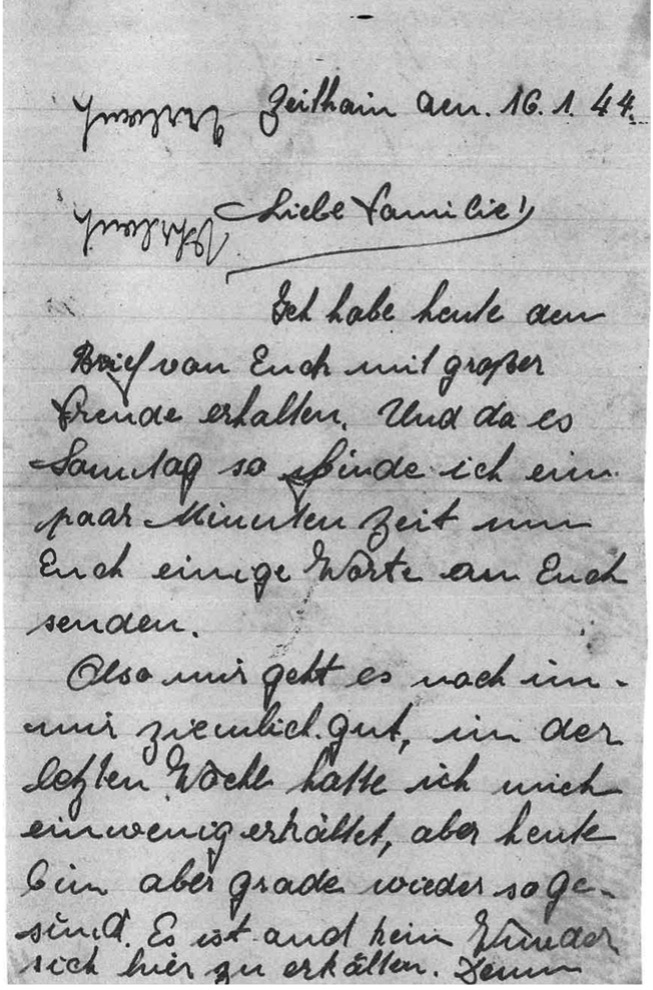 Zeithain den. 16.1.44.
Urlaub
Liebe Familie!
Urlaub
Ich habe heute den
Brief von Euch mit großer
Freude erhalten. Und da es
Sonntag so finde ich ein
paar Minuten Zeit um
Euch einige Worte an Euch
senden.
Also mir geht es noch im-
mir ziemlich gut, in der
letzten Woche hatte ich mich
einwenig erkältet, aber heute
bin aber grade wieder so ge-
sind. Es ist auch kein Wunder
sich hier zu erkälten. Denn